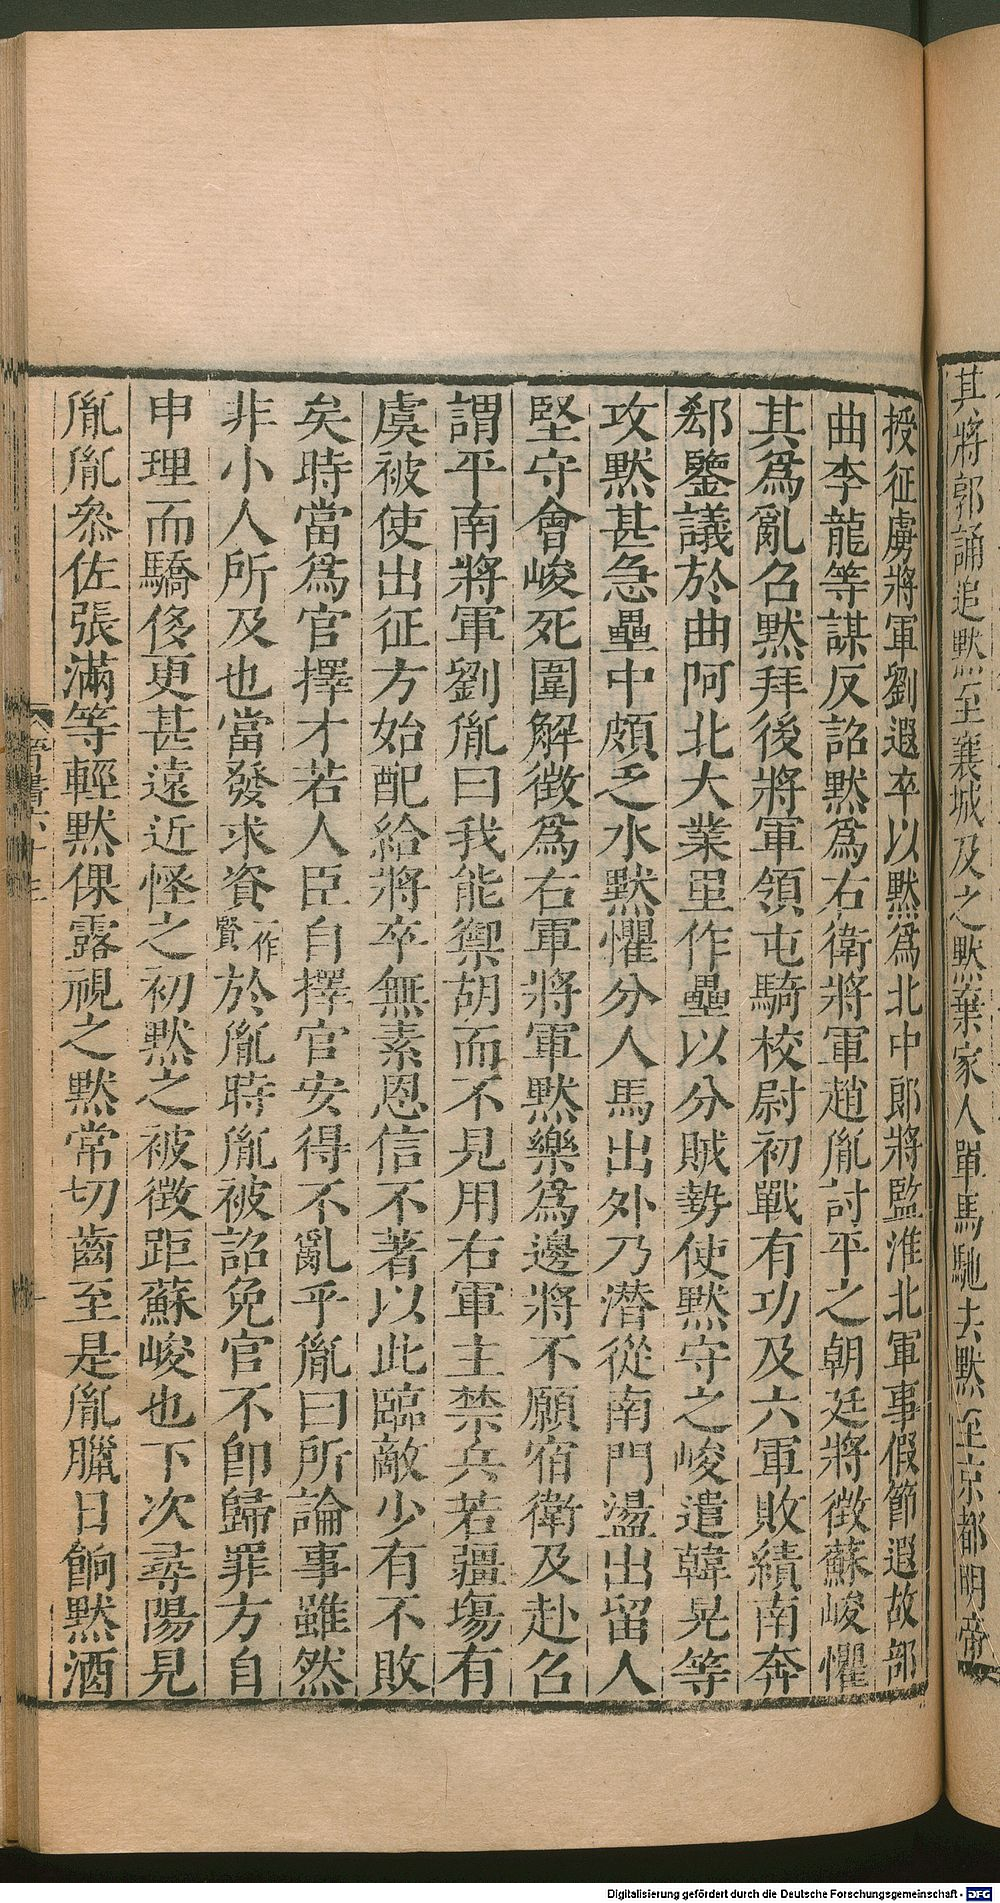 其將郭誦追默至襄城及之默棄家人單馬馳去默至京都明帝
授征虜將軍劉遐卒以默爲北中郎將監淮北軍事假節遐故部
曲李龍等謀反詔默爲右衛將軍趙胤討平之朝廷將徵蘇峻懼
其爲亂召默拜後將軍領屯騎校尉初戰有功及六軍敗績南奔
郄鑒議於曲阿北大業里作壘以分賊勢使默守之峻遣韓晃等
攻默甚急壘中頗乏水默懼分人馬出外乃潛從南門盪出留人
堅守會峻死圍解徵爲右軍將軍默樂爲邊將不願宿衛及赴召
謂平南將軍劉胤曰我能禦胡而不見用右軍主禁兵若疆場有
虞被使出征方始配給將卒無素恩信不著以此臨敵少有不敗
矣時當爲官擇才若人臣自擇官安得不亂乎胤曰所論事雖然
非小人所及也當發求資一作賢於胤時胤被詔免官不卽歸罪方自
申理而驕侈更甚遠近怪之初默之被徵距蘇峻也下次尋陽見
胤胤參佐張滿等輕默倮露視之默常切齒至是胤臘日餉默酒
晉書六十三
Digitalisierung gefördert durch die Deutsche Forschungsgemeinschaft - DFG